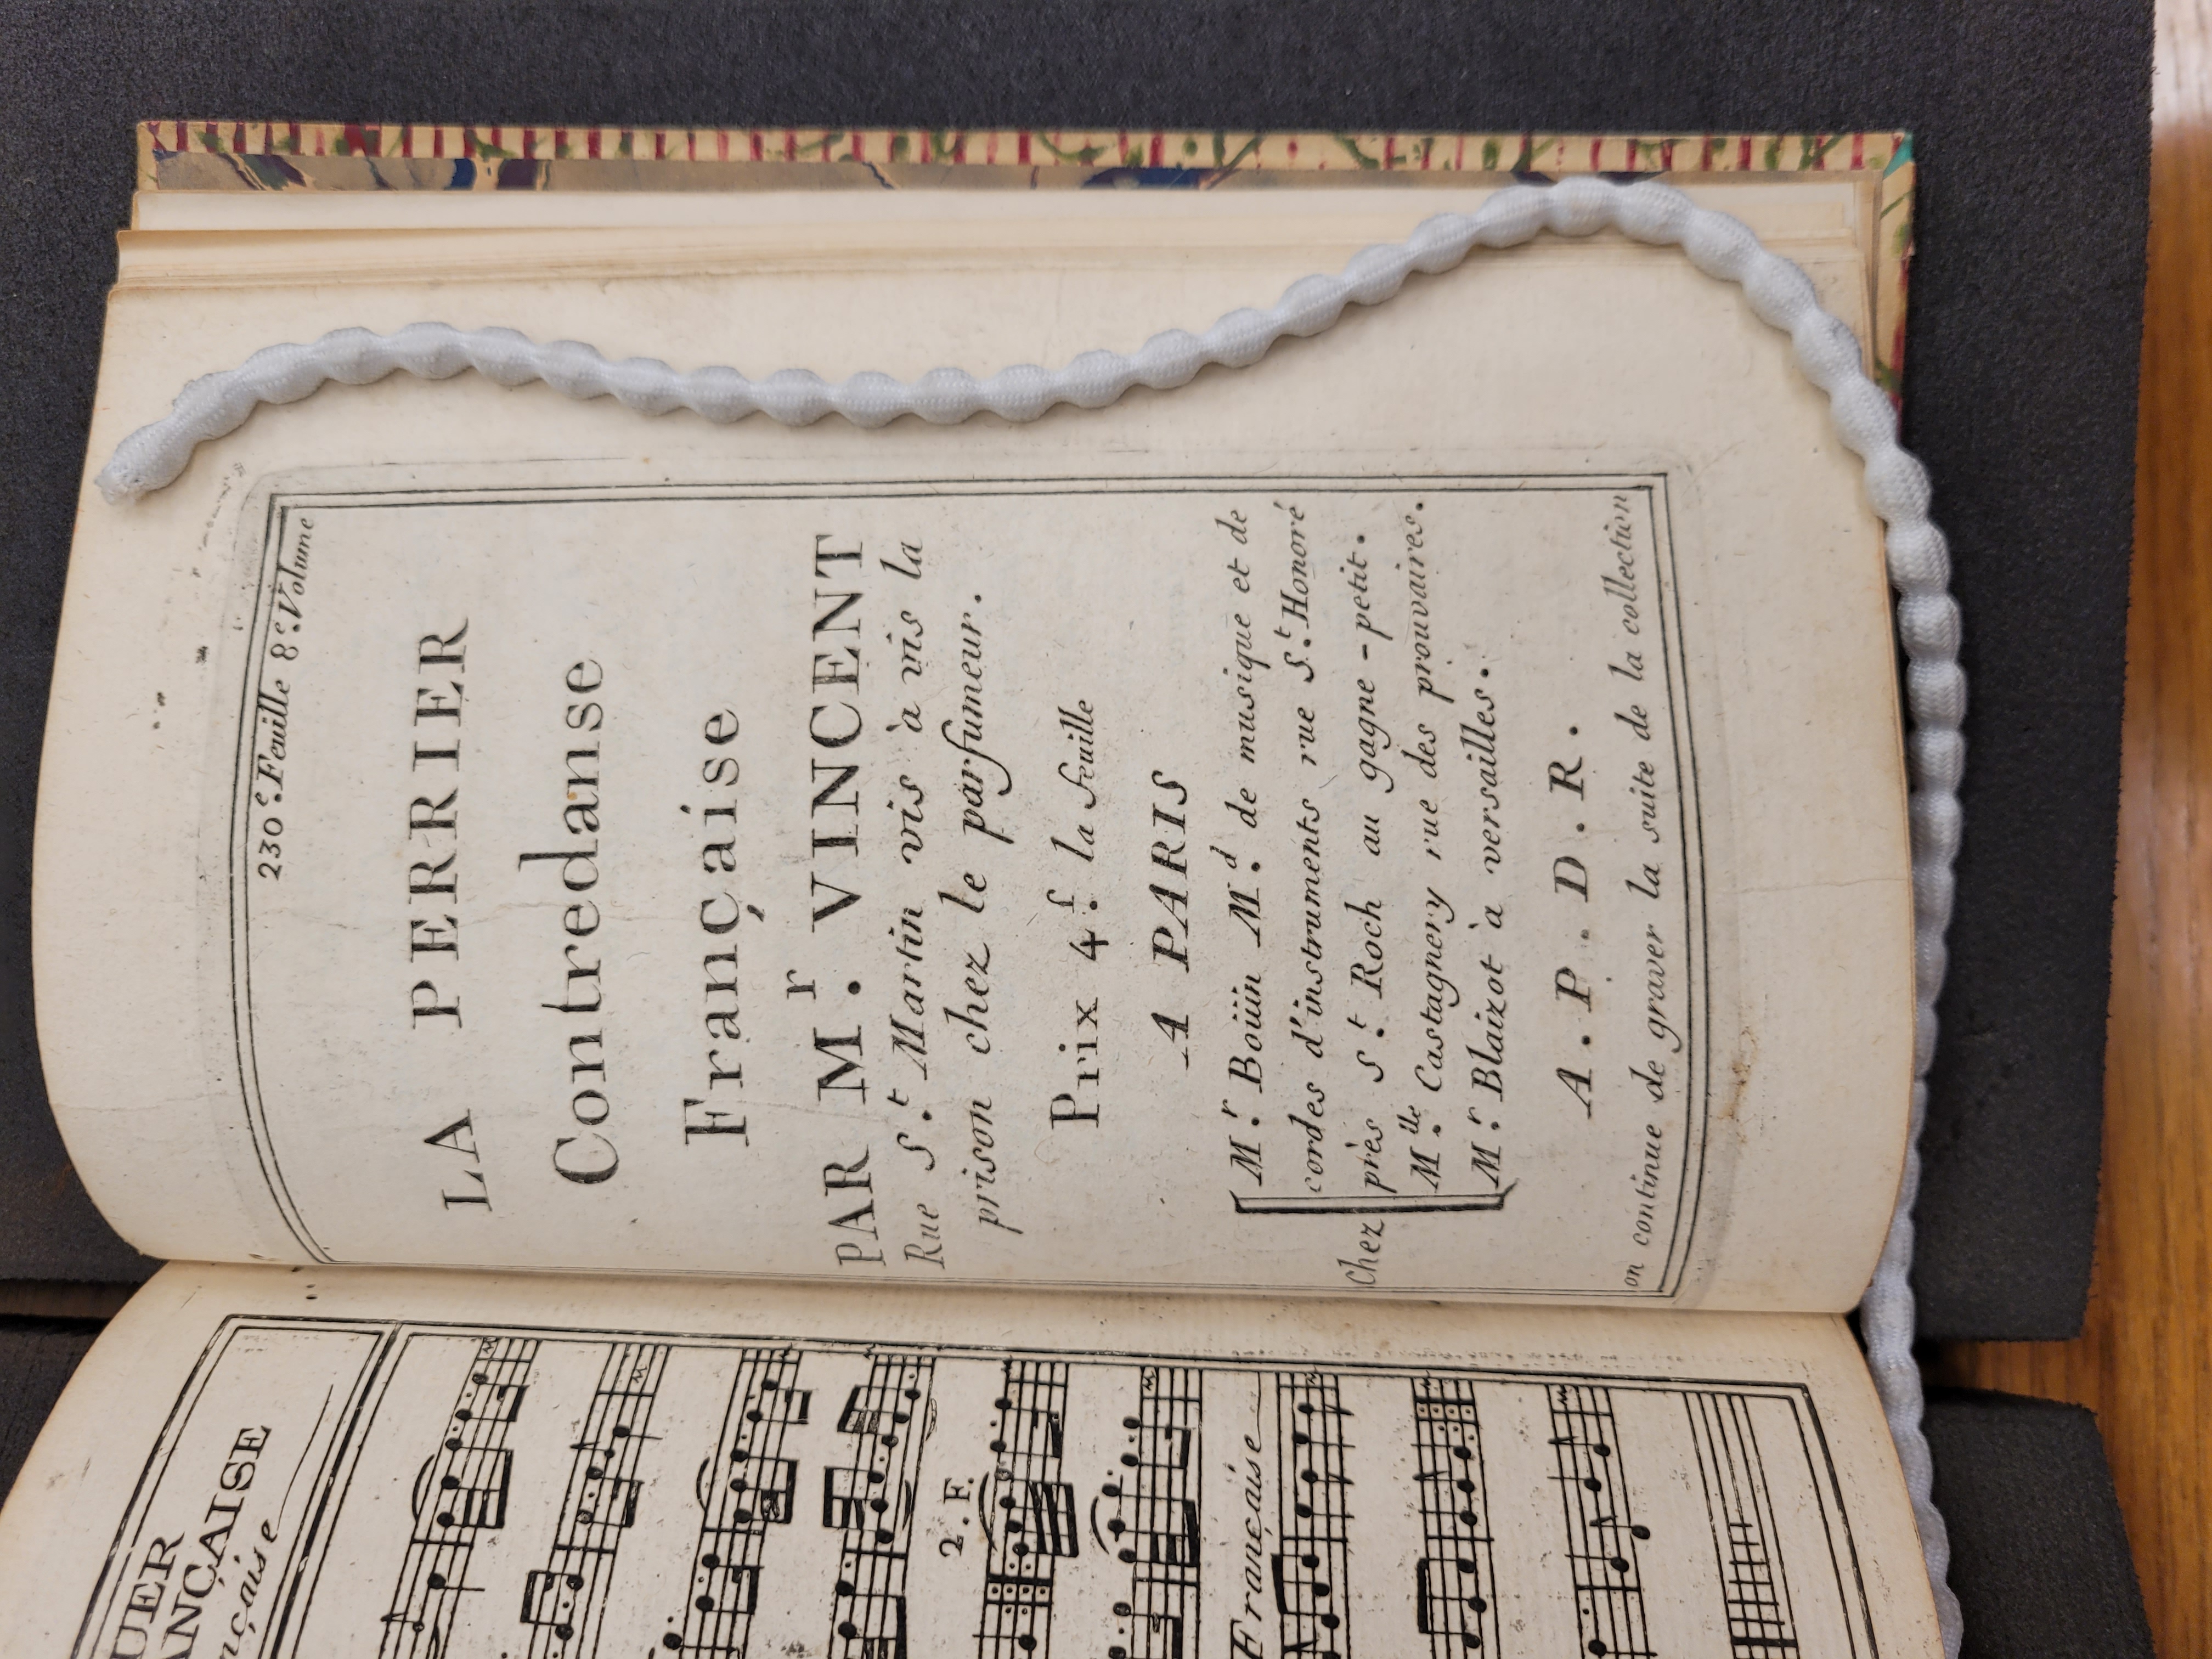 UER
ANÇAISE
nçaise
2.F.
Française
230.e Feuille 8.e Volume
LA PERRIER
Contredanse
Française
PAR M.r VINCENT
Rue S.t Martin vis à vis la
prison chez le parfumeur.
Prix 4.f la feuille
A PARIS
Chez
M.r Boüin M.d de musique et de
cordes d'instruments rue S.t Honoré
près S.t Roch au gagne-petit.
M.lle Castagnery rue des prouvaires.
M.r Blaizot à versailles.
A.P.D.R.
on continue de graver la suite de la collection